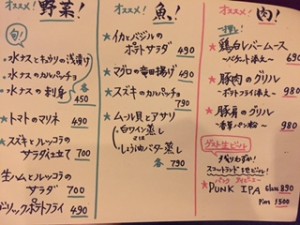 オススメ! 野菜!
旬!
水ナスときゅうりの浅漬け
水ナスのカルパッチョ
水ナスの刺身
各450
★トマトのマリネ 490
★スズキとルッコラの
サラダ仕立て 700
生ハムとルッコラの
サラダ 700
ガーリックポテトフライ 490
オススメ! 魚っ!
★イカとバジルの
ポテトサラダ 490
★マグロの竜田揚げ 490
★スズキのカルパッチョ
790
★ムール貝とアサリ
白ワイン蒸し
or
しょうゆバター蒸し
各790
オススメ! 肉!
★鶏白レバームース
〜バケット添え〜 690
★豚肉のグリル
〜ポテトフライ添え〜 980
★豚肩のグリル
〜香草パン粉〜 980
ゲスト生ビール
残りわずか!
スコットランド地ビール!
パンク アイピーエー
★PUNK IPA Glass 890
Pint 1500